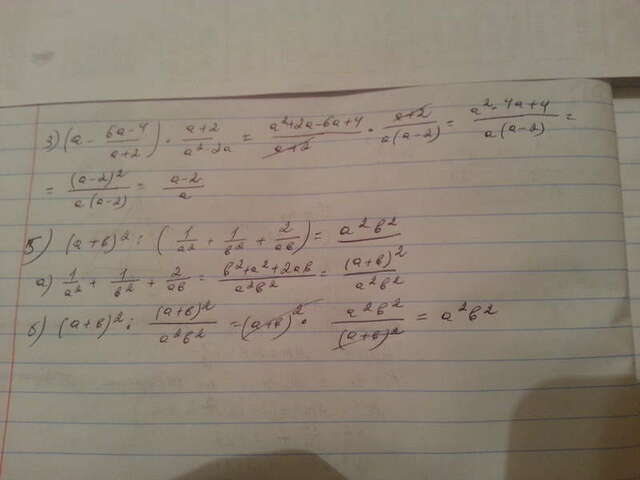 3) (a - \frac{6a-4}{a+2}) \cdot \frac{a+2}{a^2-2a} = \frac{a^2+2a-6a+4}{a+2} \cdot \frac{a+2}{a(a-2)} = \frac{a^2-4a+4}{a(a-2)} =
= \frac{(a-2)^2}{a(a-2)} = \frac{a-2}{a}
5) (a+в)^2 : (\frac{1}{a^2} + \frac{1}{в^2} + \frac{2}{aв}) = a^2в^2
а) \frac{1}{a^2} + \frac{1}{в^2} + \frac{2}{aв} = \frac{в^2+a^2+2aв}{a^2в^2} = \frac{(a+в)^2}{a^2в^2}
б) (a+в)^2 : \frac{(a+в)^2}{a^2в^2} = (a+в)^2 \cdot \frac{a^2в^2}{(a+в)^2} = a^2в^2